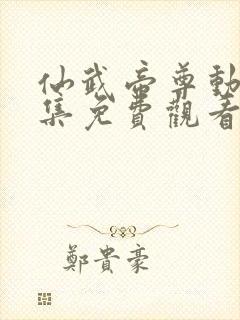 仙武帝尊動
集免費觀看
鄭貴豪